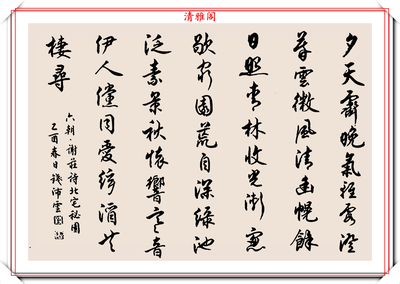 清雅阁
夕天霽晚氣輕霞澄
暮雲微風清幽幌餘
日照青林收光漸窗
歇窮園荒自深綠池
泛素景秋懷響寒音
伊人儻同愛絃酒共
棲尋
六朝謝莊詩北宅祕園
乙酉春日錢沛雲